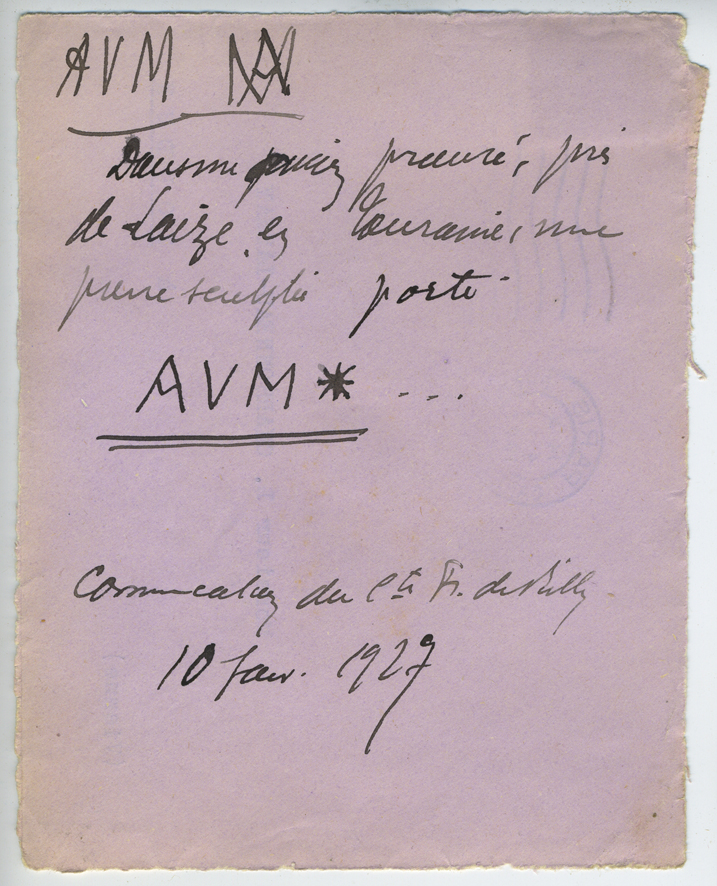 AVM AVM
Dans un ancien prieuré, près
de Laize, en Touraine, une
pierre sculptée porte
AVM * ...
Communication du Cte Fr. de Rilly
10 janv. 1927